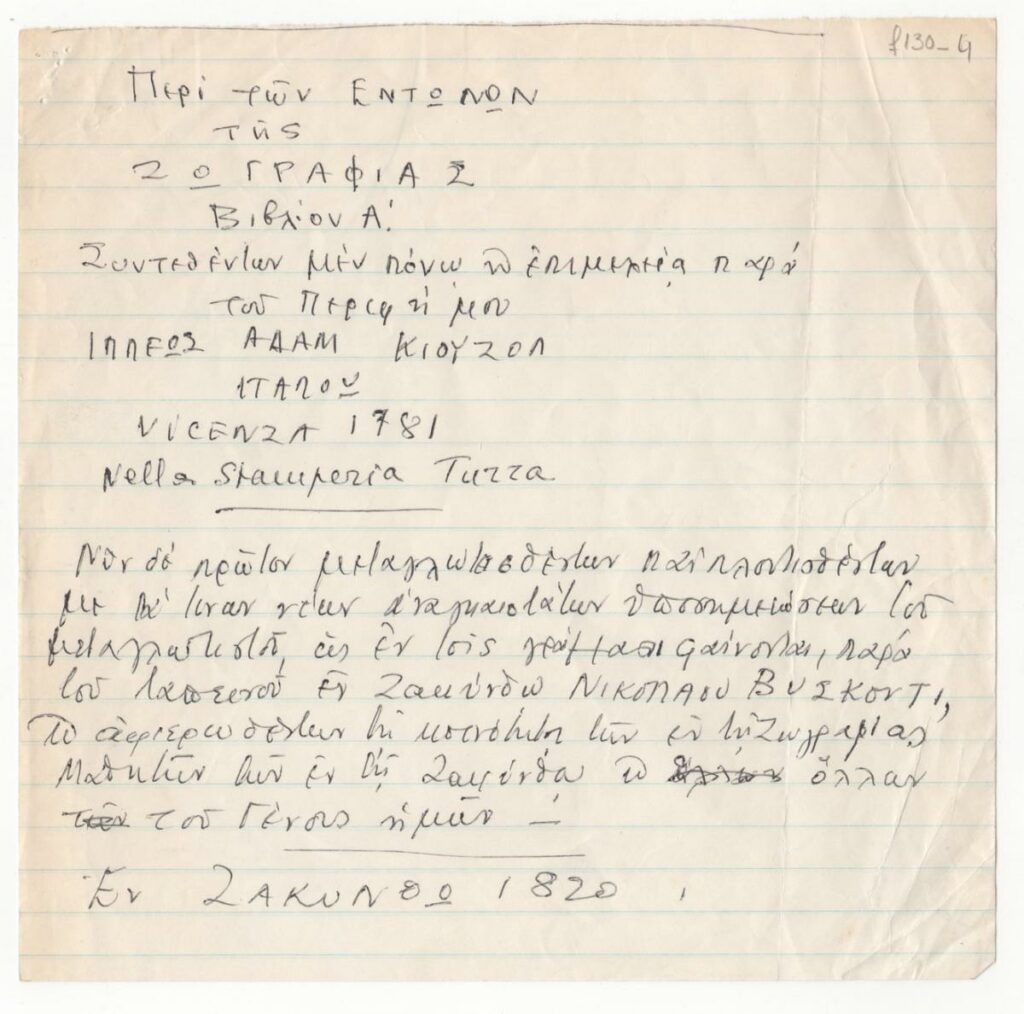 f130-4
Περί τῶν ΕΝΤΩΝΩΝ
τῆς
ΖΩΓΡΑΦΙΑΣ
Βιβλίον Α!
Συντεθέντων μέν πόνω ϗ ἐπιμελεία παρά
τοῦ Περιφήμου
ΙΠΠΕΩΣ ΑΔΑΜ ΚΙΟΥΖΟΛ
ΙΤΑΛΟΥ
VICENZA 1781
Nella Stamperia Turra
Νῦν δέ πρῶτον μεταγλωττισθέντων καί πλουτισθέντων
με τινων νέων ἀναγκαιοτάτων ὑποσημειώσεων τοῦ
μεταγλωττιστοῦ, ὡς ἐν τοῖς γράμμασι φαίνονται, παρά
τοῦ ταπεινοῦ ἐν Ζακύνθω ΝΙΚΟΛΑΟΥ ΒΥΣΚΟΝΤΙ,
ϗ ἀφιερωθέντων τῆ κοινότητι τῶν ἐν τῆ Ζωγραφίας
Μαθητῶν τῶν ἐν τῆ Ζακύνθω ϗ ὅλλων
τοῦ Γένους ἡμῶν —
Ἐν ΖΑΚΥΝΘΩ 1820